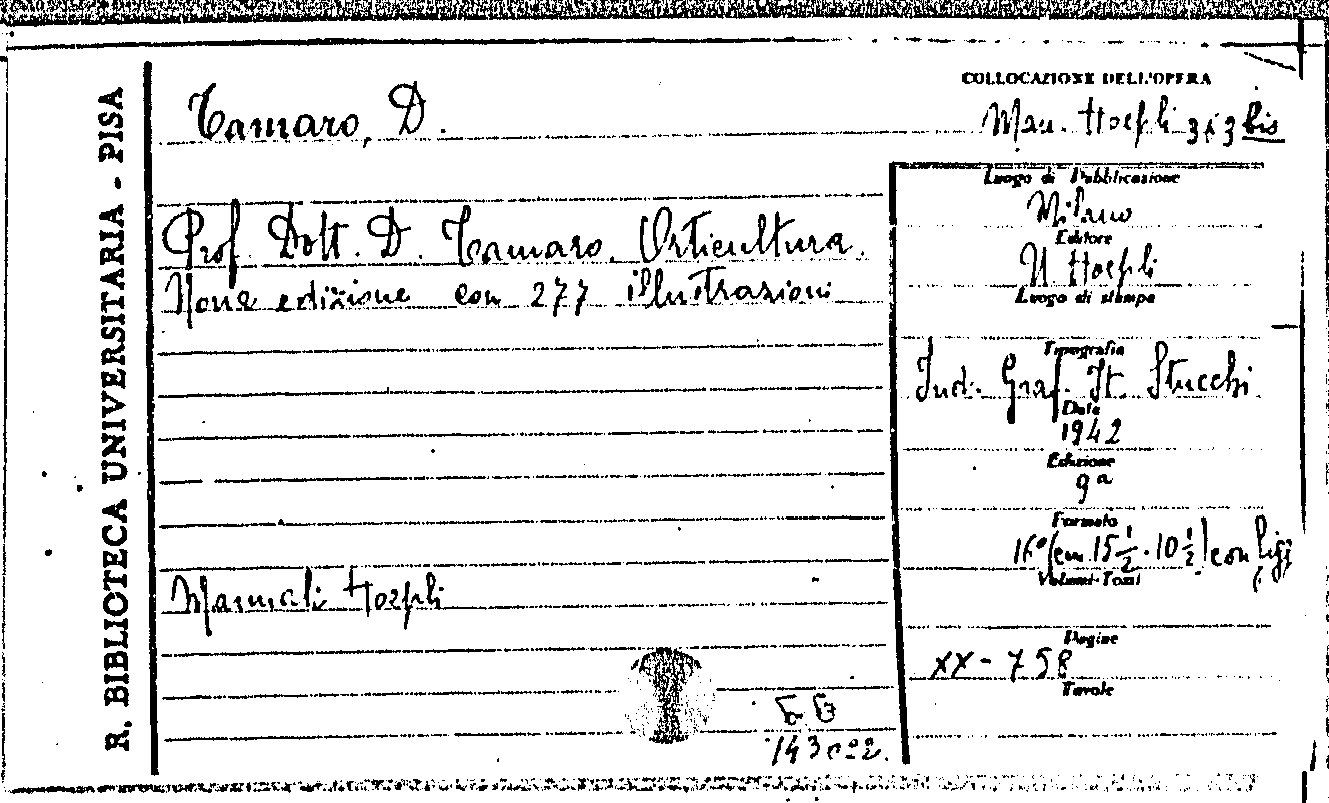 R. BIBLIOTECA UNIVERSITARIA - PISA
COLLOCAZIONE DELL'OPERA
Tamaro, D.
Man. Hoepli 3 3 bis
Luogo di Pubblicazione
Milano
Prof. Dott. D. Tamaro. Orticultura.
Editore
U. Hoepli
Nona edizione con 277 illustrazioni
Luogo di stampa
Tipografia
Ind. Graf. It. Stucchi
Data
1942
Edizione
9a
Formato
16° (cm. 15 1/2 . 10 1/2) con
Volumi-Tomi
Manuali Hoepli
Pagine
XX - 758
Tavole
143022.